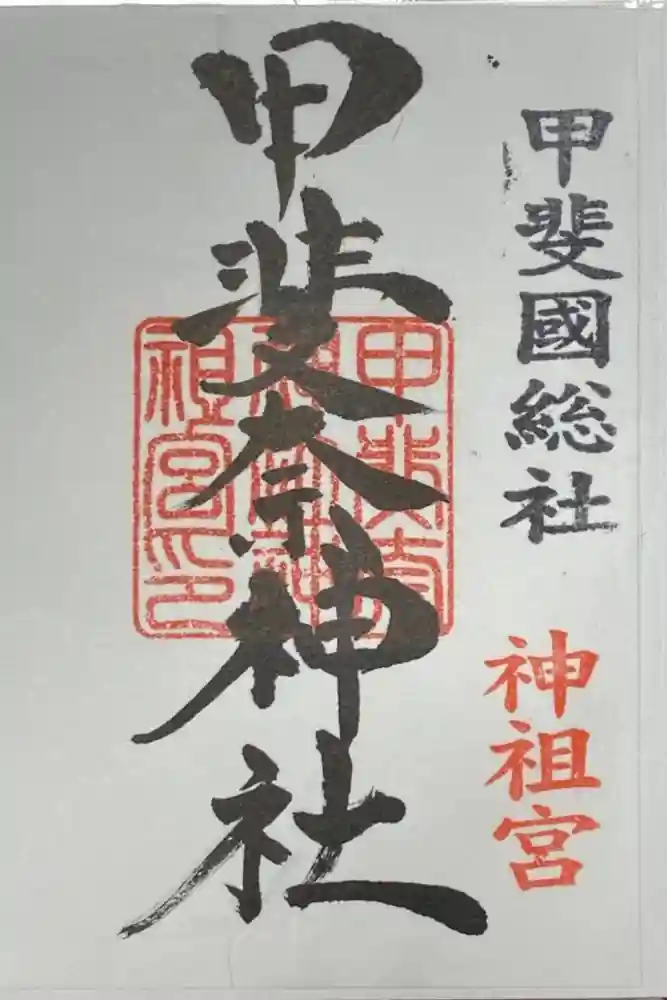 甲斐國総社
神祖宮
甲斐奈神社
甲斐奈
祖宮印